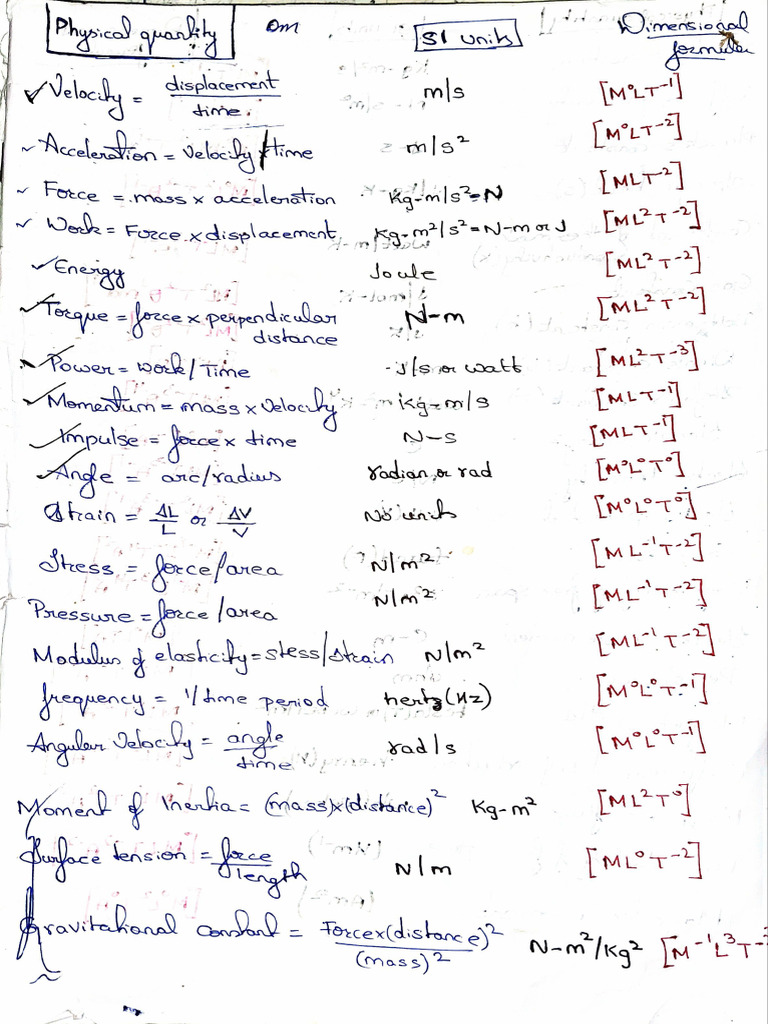 Physical quantity Om SI units Dimensional formulae
Velocity = displacement/time m/s [M⁰LT⁻¹]
Acceleration = Velocity/time m/s² [M⁰LT⁻²]
Force = mass x acceleration Kg-m/s² = N [MLT⁻²]
Work = Force x displacement Kg-m²/s² = N-m or J [ML²T⁻²]
Energy Joule [ML²T⁻²]
Torque = force x perpendicular N-m [ML²T⁻²]
distance
Power = Work/Time J/s or watt [ML²T⁻³]
Momentum = mass x Velocity Kg-m/s [MLT⁻¹]
Impulse = force x time N-s [MLT⁻¹]
Angle = arc/radius radian or rad [M⁰L⁰T⁰]
Strain = ΔL/L or ΔV/V No units [M⁰L⁰T⁰]
Stress = force/area N/m² [ML⁻¹T⁻²]
Pressure = force/area N/m² [ML⁻¹T⁻²]
Modulus of elasticity = stess/strain N/m² [ML⁻¹T⁻²]
frequency = 1/time period hertz(Hz) [M⁰L⁰T⁻¹]
Angular Velocity = angle/time rad/s [M⁰L⁰T⁻¹]
Moment of Inertia = (mass)x(distance)² Kg-m² [ML²T⁰]
Surface tension = force/length N/m [ML⁰T⁻²]
Gravitational constant = Forcex(distance)²/(mass)² N-m²/Kg² [M⁻¹L³T⁻